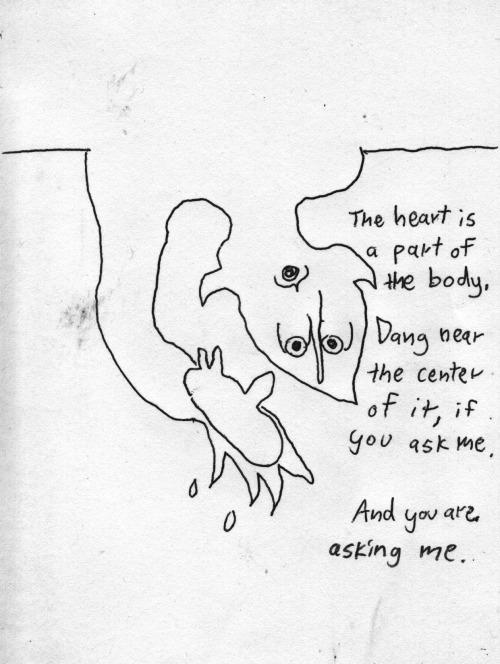 The heart is
a part of
the body.
Dang near
the center
of it, if
you ask me.
And you are
asking me.